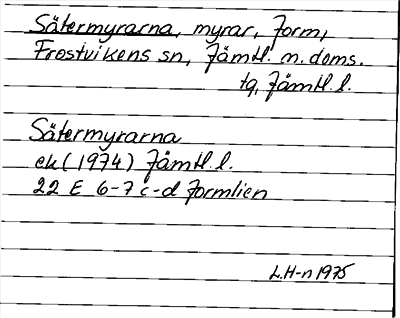 Sätermyrarna, myrar, Form,
Frostvikens sn, Jämtl. n. doms.
tg, Jämtl. l.
Sätermyrarna
ek (1974) Jämtl. l.
22 E 6-7 c-d Formlien
L.H-n 1975